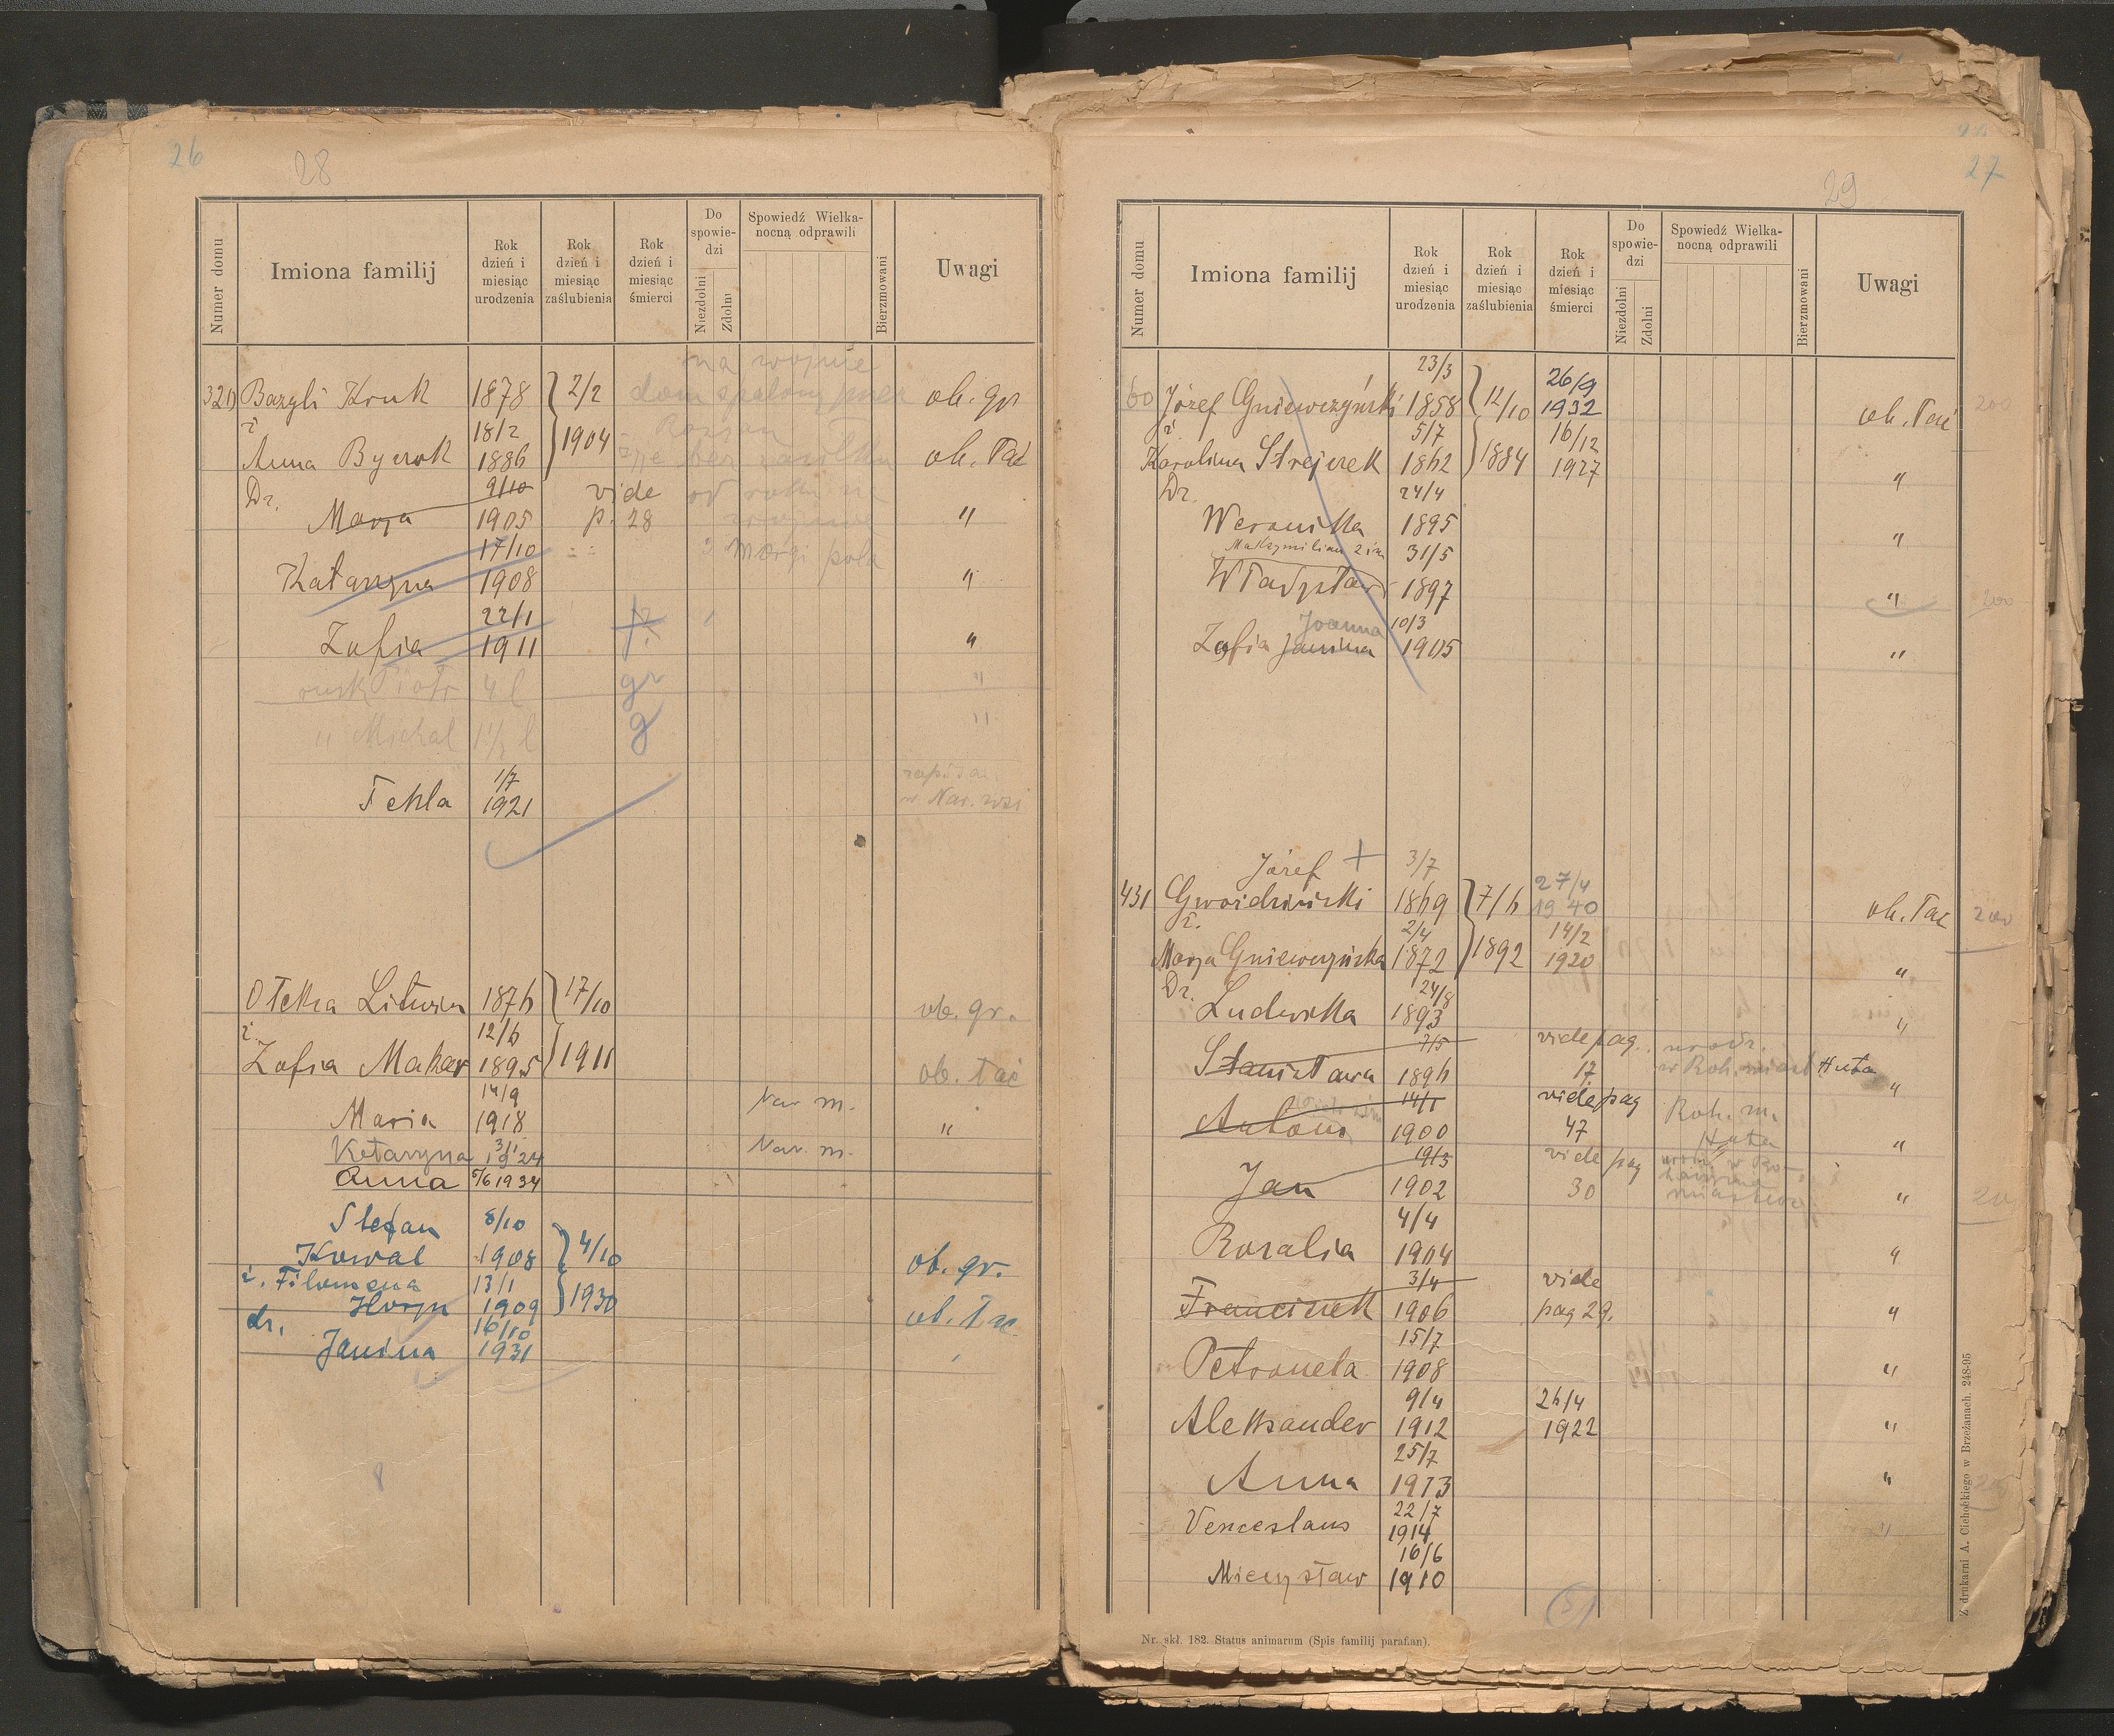 26
28
Numer domu
Imiona familij
Rok dzień i miesiąc urodzenia
Rok dzień i miesiąc zaślubienia
Rok dzień i miesiąc śmierci
Do spowiedzi
Niezdolni
Zdolni
Spowiedź Wielkanocną odprawili
Bierzmowani
Uwagi
na wojnie
321) Bazyli Kruk 1878 2/2 dom spalony przez ob. gr
ż 18/2 1904
Anna Byczok 1886 żyje bez zasiłku ob. łać
Dz. 9/10 vide od roku na
Marja 1905 p. 28 wojnie "
17/10 2 morgi pola
Katarzyna 1908 "
22/1
Zofia 1911 "
Piotr 4 l gr "
" Michał 1 1/2 l g "
1/7
Tekla 1921 w Nar.
Ołeksa Litwin 1876 17/10 ob. gr.
ż. 12/6
Zofia Makar 1895 1911 ob. łać
14/9 Nar m.
Maria 1918 "
Katarzyna 3/1 1924 Nar. m.
Anna 5/6 1934
Stefan 8/10
Kowal 1908 4/10 ob. gr.
ż. Filomena 13/1
Horyn 1909 1930 ob. łac
dz. 16/10
Janina 1931
27
29
Numer domu
Imiona familij
Rok dzień i miesiąc urodzenia
Rok dzień i miesiąc zaślubienia
Rok dzień i miesiąc śmierci
Do spowiedzi
Niezdolni
Zdolni
Spowiedź Wielkanocną odprawili
Bierzmowani
Uwagi
23/3 26/9
60 Józef Gniewczyński 1858 12/10 1932 ob. łać 200
ż 5/7 16/12
Karolina Strejczek 1862 1884 1927 "
Dz. 24/4
Weronika 1895 "
Maksymilian 2 im 31/5
Władysław 1897 " 200
Joanna 10/3
Zofia Janina 1905 "
Józef + 3/7 27/4
431 Gwoździński 1869 7/6 1940 ob. łac 200
ż. 2/4 14/2
Marja Gniewczyńska 1872 1892 1920 "
Dz. 24/8
Ludwika 1893 "
7/5 vide pag. urodz.
Stanisława 1896 17 w Roh. Huta "
14/1 vide pag Roh. m.
Antoni 1900 47 Huta "
19/3 vide pag
Jan 1902 30 "
4/4
Rozalia 1904 "
3/4 vide
Franciszek 1906 pag 29. "
15/7
Petronela 1908 "
9/4 26/4
Aleksander 1912 1922 "
25/7
Anna 1913 "
22/7
Venceslaus 1914 "
16/6
Mieczysław 1910
51
Nr. skł. 182. Status animarum (Spis familij parafian).
Z drukarni A. Cichockiego w Brzeżanach. 248-95